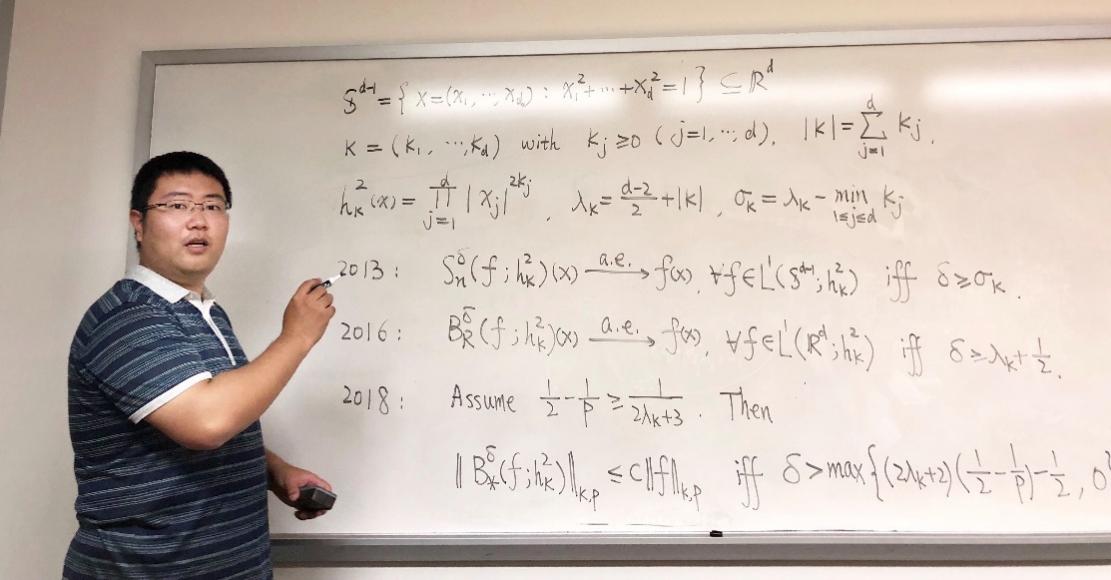 𝕊^{d-1} = { x = (x₁, ⋯, x_d) : x₁² + ⋯ + x_d² = 1 } ⊆ ℝ^d
κ = (κ₁, ⋯, κ_d) with κ_j ≥ 0 (j=1, ⋯, d), |κ| = ∑_{j=1}^{d} κ_j,
h_κ²(x) = ∏_{j=1}^{d} |x_j|^{2κ_j}, λ_κ = \frac{d-2}{2} + |κ|, σ_κ = λ_κ - min_{1≤j≤d} κ_j
2013: S_n^δ(f; h_κ²)(x) \xrightarrow{a.e.} f(x), ∀f ∈ L¹(𝕊^{d-1}; h_κ²) iff δ ≥ σ_κ.
2016: B_R^δ(f; h_κ²)(x) \xrightarrow{a.e.} f(x), ∀f ∈ L¹(ℝ^d; h_κ²) iff δ ≥ λ_κ + \frac{1}{2}.
2018: Assume \frac{1}{2} - \frac{1}{p} ≥ \frac{1}{2λ_κ+3}. Then
‖B_*^δ(f; h_κ²)‖_{κ,p} ≤ C‖f‖_{κ,p} iff δ > max{(2λ_κ+2)(\frac{1}{2} - \frac{1}{p}) - \frac{1}{2}, 0}